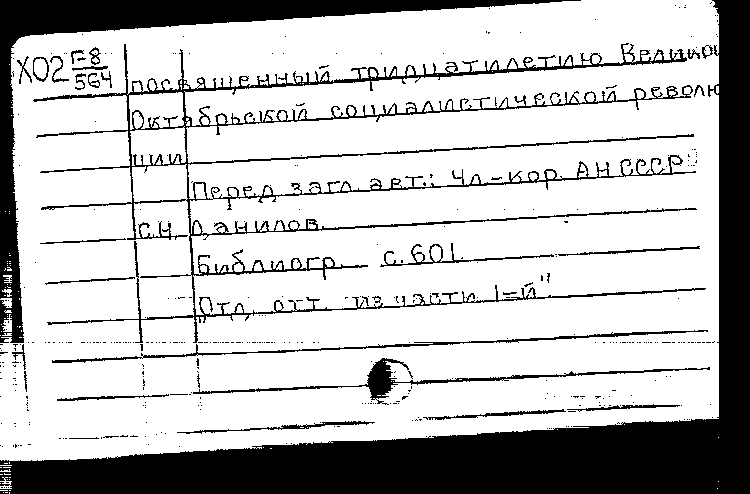 Х02 Г-8
564
посвященный тридцатилетию Велико
Октябрьской социалистической револю
ции
Перед загл. авт.: Чл-кор. АН СССР
С.Н. Данилов.
Библиогр. с. 601.
"Отд. отт. из части 1=й"